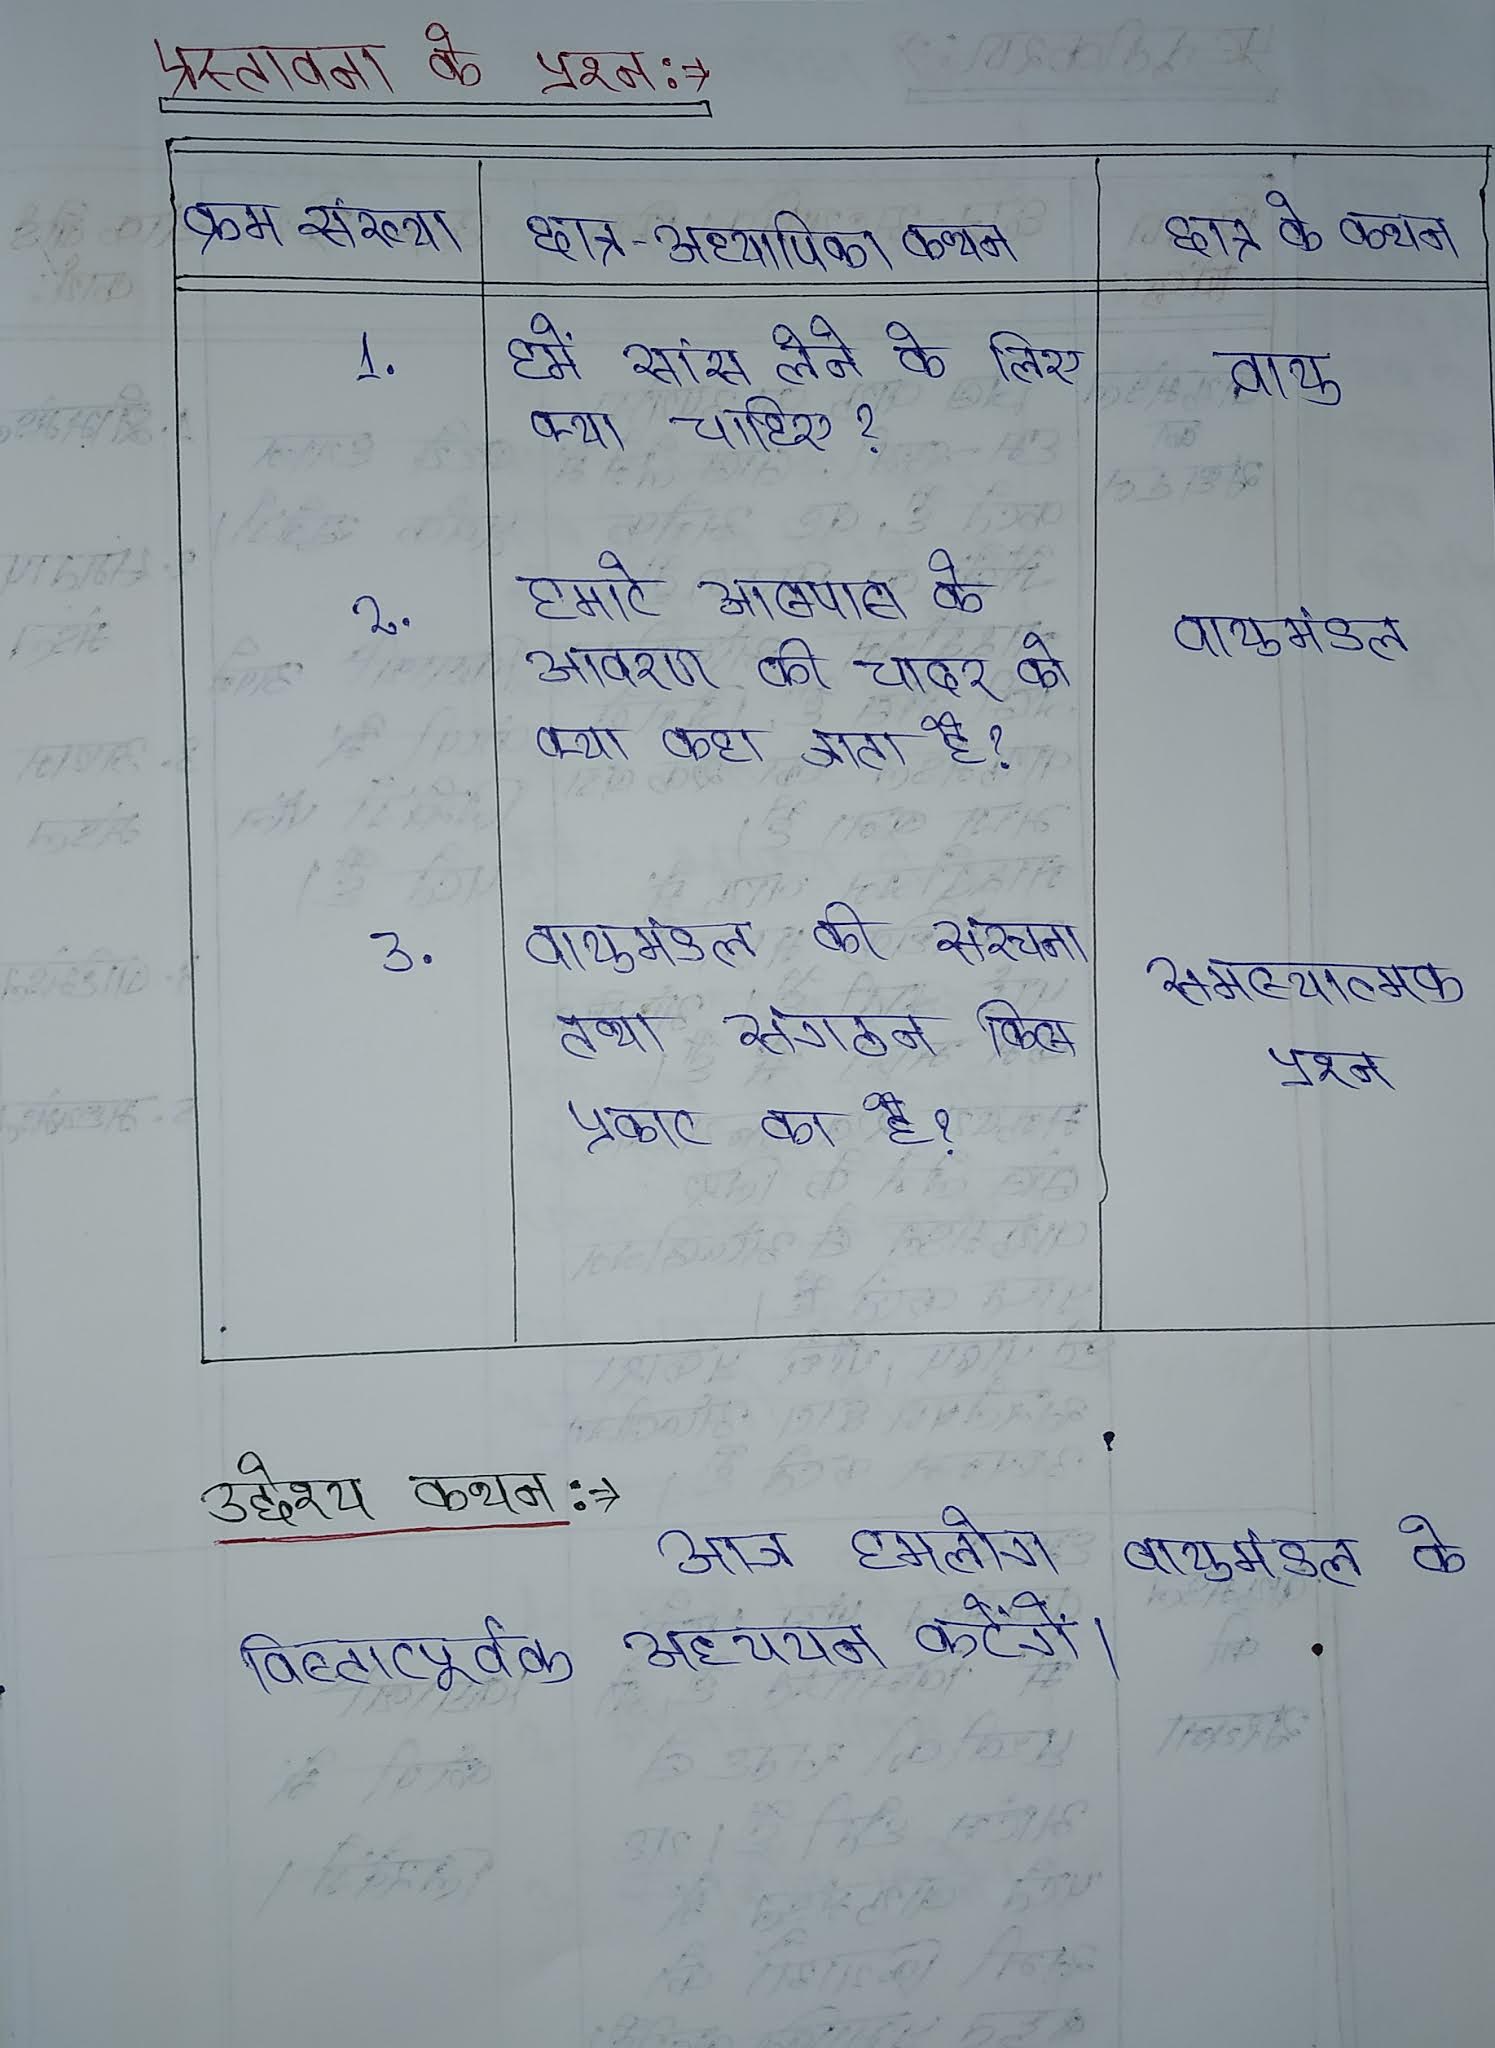 प्रस्तावना के प्रश्न:→
क्रम संख्या छात्र-अध्यापिका कथन छात्र के कथन
1. हमें सांस लेने के लिए वायु
क्या चाहिए?
2. हमारे आसपास के वायुमंडल
आवरण की चादर को
क्या कहा जाता है?
3. वायुमंडल की संरचना समस्यात्मक
तथा संगठन किस प्रश्न
प्रकार का है?
उद्देश्य कथन:→
आज हमलोग वायुमंडल के
विस्तारपूर्वक अध्ययन करेंगें।